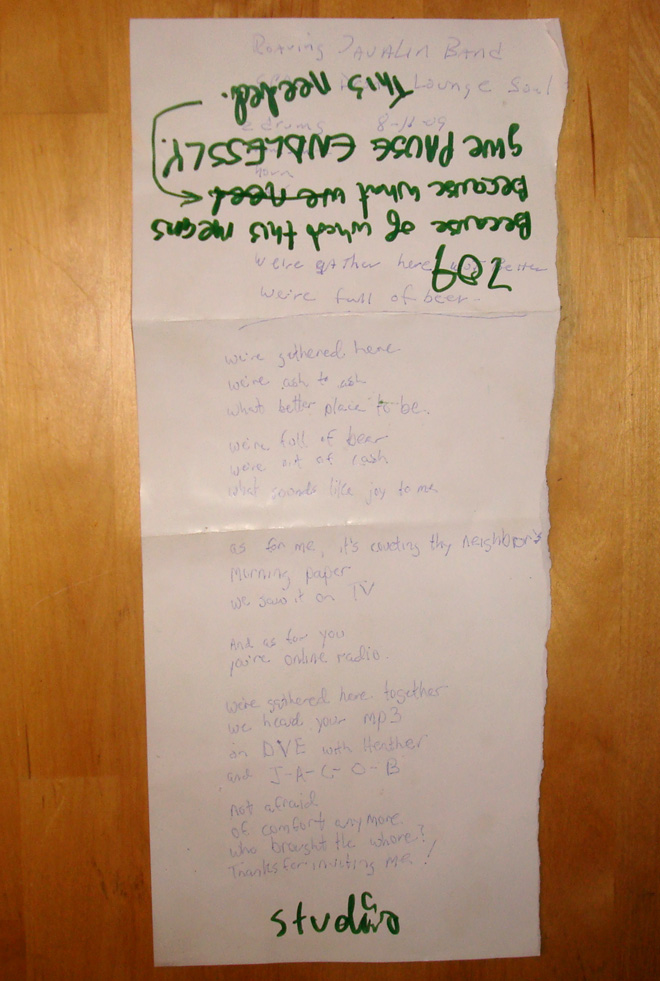 Roaving Javalin Band
Lounge Soul
drums 8-11-09
Horn
We're gather here better
We're full of beer.
we're gathered here
we're ash to ash
what better place to be.
we're full of beer
we're out of cash
what sounds like joy to me
as for me, it's coveting thy neighbor's
Morning paper
we saw it on TV
And as for you
you're online radio.
we're gathered here together
we heard your mp3
on DVE with Heather
and J-A-C-O-B
not afraid
of comfort anymore.
who brought the whore?
Thanks for inviting me!
studio
709
Because of what this means
Because what we need
give PAUSE ENDLESSLY.
This needed.